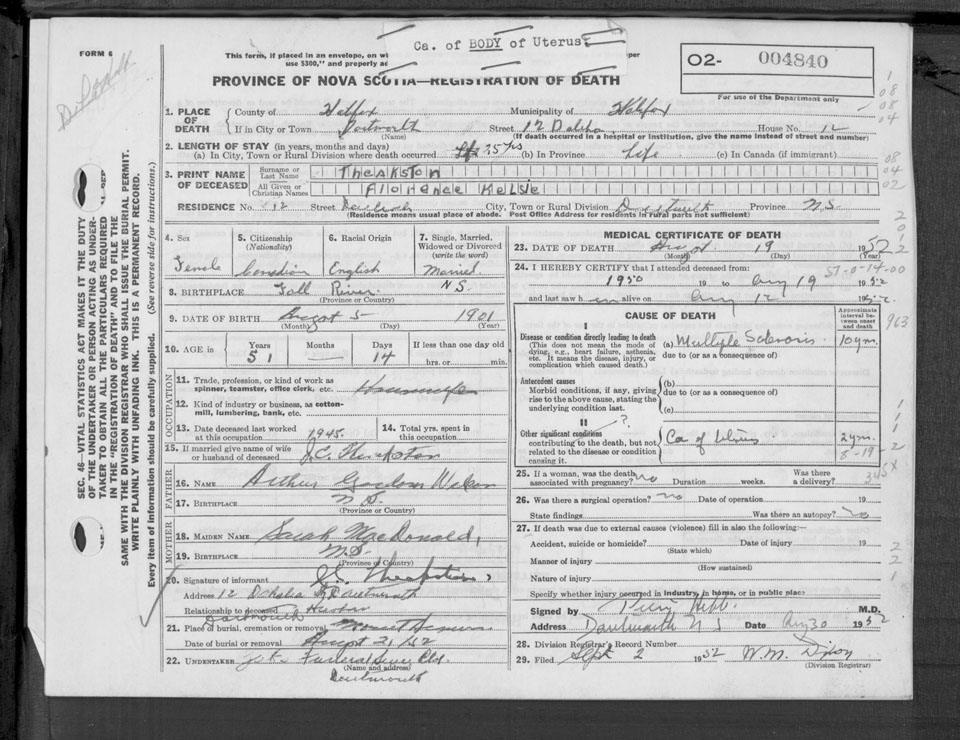 FORM 6
Ca. of BODY of Uterus.
This form, if placed in an envelope, on
use $300," and properly
per
PROVINCE OF NOVA SCOTIA—REGISTRATION OF DEATH
O2- 004840
For use of the Department only
1. PLACE OF DEATH
County of Halifax Municipality of Halifax
If in City or Town Dartmouth Street 12 House No. 12
(Name) (If death occurred in a hospital or institution, give the name instead of street and number)
2. LENGTH OF STAY (in years, months and days)
(a) In City, Town or Rural Division where death occurred 25 yrs (b) In Province Life (c) In Canada (if immigrant)
3. PRINT NAME OF DECEASED
Surname or Last Name Theakston
All Given or Christian Names Florence Kelsie
RESIDENCE No. 12 Street City, Town or Rural Division Dartmouth Province N.S.
(Residence means usual place of abode. Post Office Address for residents in rural parts not sufficient)
4. Sex Female
5. Citizenship (Nationality) Canadian
6. Racial Origin English
7. Single, Married, Widowed or Divorced (write the word) Married
8. BIRTHPLACE Fall River N.S.
(Province or Country)
9. DATE OF BIRTH August 5 1901
(Month) (Day) (Year)
10. AGE in Years 51 Months — Days 14 If less than one day old hrs. or min.
OCCUPATION
11. Trade, profession, or kind of work as spinner, teamster, office clerk, etc. Housewife
12. Kind of industry or business, as cotton-mill, lumbering, bank, etc.
13. Date deceased last worked at this occupation 1945.
14. Total yrs. spent in this occupation
15. If married give name of wife or husband of deceased J.C. Theakston
FATHER
16. NAME Arthur Gordon
17. BIRTHPLACE N.S.
(Province or Country)
MOTHER
18. MAIDEN NAME Sarah MacDonald,
19. BIRTHPLACE N.S.
(Province or Country)
20. Signature of informant Theakston
Address 12 Dahalia St Dartmouth
Relationship to deceased Husban
Dartmouth
21. Place of burial, cremation or removal Mount Hermon
Date of burial or removal August 21/52
22. UNDERTAKER Funeral Service Ltd.
(Name and address)
Dartmouth
MEDICAL CERTIFICATE OF DEATH
23. DATE OF DEATH August 19 1952
(Month) (Day) (Year)
24. I HEREBY CERTIFY that I attended deceased from:
57-0-14-00
1950 19 to Aug 19 1952
and last saw h er alive on Aug 12 1952
CAUSE OF DEATH
Approximate interval between onset and death
I
Disease or condition directly leading to death
(This does not mean the mode of dying, e.g., heart failure, asthenia, etc. It means the disease, injury, or complication which caused death.)
(a) Multiple Sclerosis 10 yrs.
due to (or as a consequence of)
963
Antecedent causes
Morbid conditions, if any, giving rise to the above cause, stating the underlying condition last.
(b)
due to (or as a consequence of)
(c)
II ?
Other significant conditions
contributing to the death, but not related to the disease or condition causing it.
Ca of Uterus 2 yrs.
8-19
25. If a woman, was the death associated with pregnancy? no Duration weeks. Was there a delivery?
345 X
26. Was there a surgical operation? no Date of operation 19
State findings Was there an autopsy? no
27. If death was due to external causes (violence) fill in also the following:—
Accident, suicide or homicide? Date of injury 19
(State which)
Manner of injury
(How sustained)
Nature of injury
Specify whether injury occurred in industry, in home, or in public place
Signed by Hebb M.D.
Address Dartmouth N S Date Aug 30 1952
28. Division Registrar's Record Number
29. Filed Sept 2 1952 W.M.
(Division Registrar)
SEC. 46—VITAL STATISTICS ACT MAKES IT THE DUTY
OF THE UNDERTAKER OR PERSON ACTING AS UNDER-
TAKER TO OBTAIN ALL THE PARTICULARS REQUIRED
IN THE "REGISTRATION OF DEATH" AND TO FILE THE
SAME WITH THE DIVISION REGISTRAR WHO SHALL ISSUE THE BURIAL PERMIT.
WRITE PLAINLY WITH UNFADING INK. THIS IS A PERMANENT RECORD.
Every item of information should be carefully supplied. (See reverse side for instructions.)